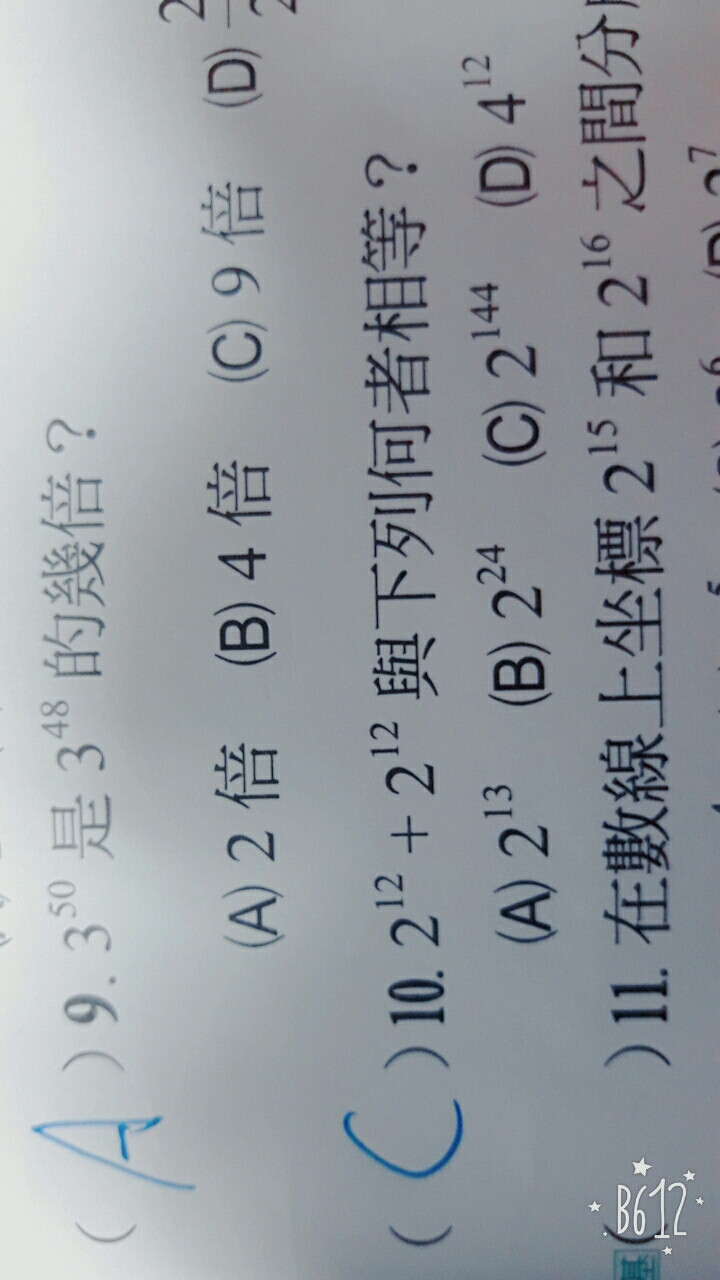 (A) 9. 3⁵⁰ 是 3⁴⁸ 的幾倍？
(A) 2 倍 (B) 4 倍 (C) 9 倍 (D)
(C) 10. 2¹² + 2¹² 與下列何者相等？
(A) 2¹³ (B) 2²⁴ (C) 2¹⁴⁴ (D) 4¹²
( ) 11. 在數線上坐標 2¹⁵ 和 2¹⁶ 之間分
基
B612